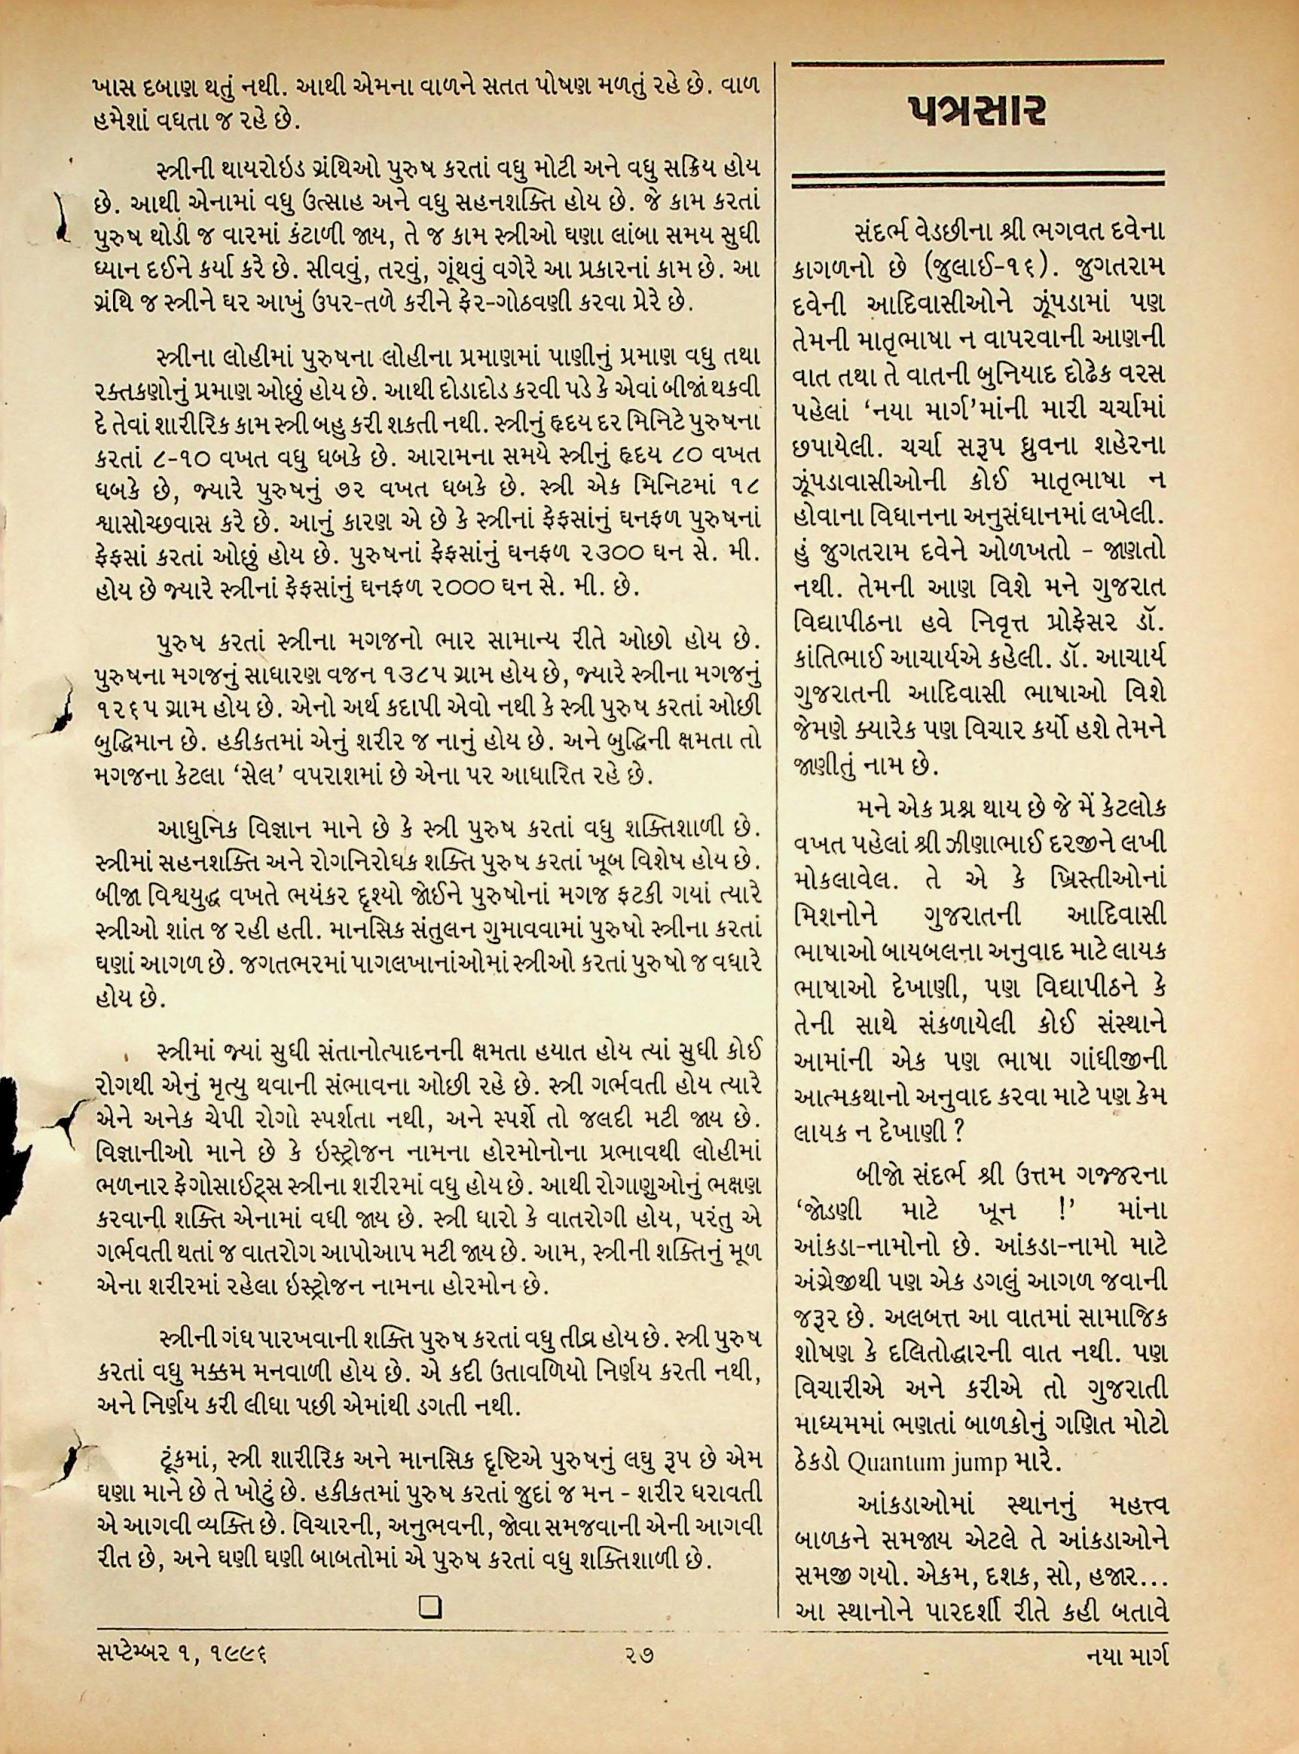 ખાસ દબાણ થતું નથી. આથી એમના વાળને સતત પોષણ મળતું રહે છે. વાળ
હમેશાં વધતા જ રહે છે.
સ્ત્રીની થાયરોઇડ ગ્રંથિઓ પુરુષ કરતાં વધુ મોટી અને વધુ સક્રિય હોય
છે. આથી એનામાં વધુ ઉત્સાહ અને વધુ સહનશક્તિ હોય છે. જે કામ કરતાં
પુરુષ થોડી જ વારમાં કંટાળી જાય, તે જ કામ સ્ત્રીઓ ઘણા લાંબા સમય સુધી
ધ્યાન દઈને કર્યા કરે છે. સીવવું, તરવું, ગૂંથવું વગેરે આ પ્રકારનાં કામ છે. આ
ગ્રંથિ જ સ્ત્રીને ઘર આખું ઉપર-તળે કરીને ફેર-ગોઠવણી કરવા પ્રેરે છે.
સ્ત્રીના લોહીમાં પુરુષના લોહીના પ્રમાણમાં પાણીનું પ્રમાણ વધુ તથા
રક્તકણોનું પ્રમાણ ઓછું હોય છે. આથી દોડાદોડ કરવી પડે કે એવાં બીજાં થકવી
દે તેવાં શારીરિક કામ સ્ત્રી બહુ કરી શકતી નથી. સ્ત્રીનું હૃદય દર મિનિટે પુરુષના
કરતાં ૮-૧૦ વખત વધુ ધબકે છે. આરામના સમયે સ્ત્રીનું હૃદય ૮૦ વખત
ધબકે છે, જ્યારે પુરુષનું ૭૨ વખત ધબકે છે. સ્ત્રી એક મિનિટમાં ૧૮
શ્વાસોચ્છવાસ કરે છે. આનું કારણ એ છે કે સ્ત્રીનાં ફેફસાંનું ઘનફળ પુરુષનાં
ફેફસાં કરતાં ઓછું હોય છે. પુરુષનાં ફેફસાંનું ઘનફળ ૨૩૦૦ ઘન સે. મી.
હોય છે જ્યારે સ્ત્રીનાં ફેફસાંનું ઘનફળ ૨૦૦૦ ઘન સે. મી. છે.
પુરુષ કરતાં સ્ત્રીના મગજનો ભાર સામાન્ય રીતે ઓછો હોય છે.
પુરુષના મગજનું સાધારણ વજન ૧૩૮૫ ગ્રામ હોય છે, જ્યારે સ્ત્રીના મગજનું
૧૨૬૫ ગ્રામ હોય છે. એનો અર્થ કદાપી એવો નથી કે સ્ત્રી પુરુષ કરતાં ઓછી
બુદ્ધિમાન છે. હકીકતમાં એનું શરીર જ નાનું હોય છે. અને બુદ્ધિની ક્ષમતા તો
મગજના કેટલા ‘સેલ’ વપરાશમાં છે એના પર આધારિત રહે છે.
આધુનિક વિજ્ઞાન માને છે કે સ્ત્રી પુરુષ કરતાં વધુ શક્તિશાળી છે.
સ્ત્રીમાં સહનશક્તિ અને રોગનિરોધક શક્તિ પુરુષ કરતાં ખૂબ વિશેષ હોય છે.
બીજા વિશ્વયુદ્ધ વખતે ભયંકર દૃશ્યો જોઈને પુરુષોનાં મગજ ફટકી ગયાં ત્યારે
સ્ત્રીઓ શાંત જ રહી હતી. માનસિક સંતુલન ગુમાવવામાં પુરુષો સ્ત્રીના કરતાં
ઘણાં આગળ છે. જગતભરમાં પાગલખાનાંઓમાં સ્ત્રીઓ કરતાં પુરુષો જ વધારે
હોય છે.
સ્ત્રીમાં જ્યાં સુધી સંતાનોત્પાદનની ક્ષમતા હયાત હોય ત્યાં સુધી કોઈ
રોગથી એનું મૃત્યુ થવાની સંભાવના ઓછી રહે છે. સ્ત્રી ગર્ભવતી હોય ત્યારે
એને અનેક ચેપી રોગો સ્પર્શતા નથી, અને સ્પર્શે તો જલદી મટી જાય છે.
વિજ્ઞાનીઓ માને છે કે ઇસ્ટ્રોજન નામના હોરમોનોના પ્રભાવથી લોહીમાં
ભળનાર ફેગોસાઈટ્સ સ્ત્રીના શરીરમાં વધુ હોય છે. આથી રોગાણુઓનું ભક્ષણ
કરવાની શક્તિ એનામાં વધી જાય છે. સ્ત્રી ધારો કે વાતરોગી હોય, પરંતુ એ
ગર્ભવતી થતાં જ વાતરોગ આપોઆપ મટી જાય છે. આમ, સ્ત્રીની શક્તિનું મૂળ
એના શરીરમાં રહેલા ઇસ્ટ્રોજન નામના હોરમોન છે.
સ્ત્રીની ગંધ પારખવાની શક્તિ પુરુષ કરતાં વધુ તીવ્ર હોય છે. સ્ત્રી પુરુષ
કરતાં વધુ મક્કમ મનવાળી હોય છે. એ કદી ઉતાવળિયો નિર્ણય કરતી નથી,
અને નિર્ણય કરી લીધા પછી એમાંથી ડગતી નથી.
ટૂંકમાં, સ્ત્રી શારીરિક અને માનસિક દૃષ્ટિએ પુરુષનું લઘુ રૂપ છે એમ
ઘણા માને છે તે ખોટું છે. હકીકતમાં પુરુષ કરતાં જુદાં જ મન - શરીર ધરાવતી
એ આગવી વ્યક્તિ છે. વિચારની, અનુભવની, જોવા સમજવાની એની આગવી
રીત છે, અને ઘણી ઘણી બાબતોમાં એ પુરુષ કરતાં વધુ શક્તિશાળી છે.
પત્રસાર
સંદર્ભ વેડછીના શ્રી ભગવત દવેના
કાગળનો છે (જુલાઈ-૧૬). જુગતરામ
દવેની આદિવાસીઓને ઝૂંપડામાં પણ
તેમની માતૃભાષા ન વાપરવાની આણની
વાત તથા તે વાતની બુનિયાદ દોઢેક વરસ
પહેલાં ‘નયા માર્ગ’માંની મારી ચર્ચામાં
છપાયેલી. ચર્ચા સરૂપ ધ્રુવના શહેરના
ઝૂંપડાવાસીઓની કોઈ માતૃભાષા ન
હોવાના વિધાનના અનુસંધાનમાં લખેલી.
હું જુગતરામ દવેને ઓળખતો - જાણતો
નથી. તેમની આણ વિશે મને ગુજરાત
વિદ્યાપીઠના હવે નિવૃત્ત પ્રોફેસર ડૉ.
કાંતિભાઈ આચાર્યએ કહેલી. ડૉ. આચાર્ય
ગુજરાતની આદિવાસી ભાષાઓ વિશે
જેમણે ક્યારેક પણ વિચાર કર્યો હશે તેમને
જાણીતું નામ છે.
મને એક પ્રશ્ન થાય છે જે મેં કેટલોક
વખત પહેલાં શ્રી ઝીણાભાઈ દરજીને લખી
મોકલાવેલ. તે એ કે ખ્રિસ્તીઓનાં
મિશનોને ગુજરાતની આદિવાસી
ભાષાઓ બાયબલના અનુવાદ માટે લાયક
ભાષાઓ દેખાણી, પણ વિદ્યાપીઠને કે
તેની સાથે સંકળાયેલી કોઈ સંસ્થાને
આમાંની એક પણ ભાષા ગાંધીજીની
આત્મકથાનો અનુવાદ કરવા માટે પણ કેમ
લાયક ન દેખાણી ?
બીજો સંદર્ભ શ્રી ઉત્તમ ગજ્જરના
‘જોડણી માટે ખૂન !’ માંના
આંકડા-નામોનો છે. આંકડા-નામો માટે
અંગ્રેજીથી પણ એક ડગલું આગળ જવાની
જરૂર છે. અલબત્ત આ વાતમાં સામાજિક
શોષણ કે દલિતોદ્ધારની વાત નથી. પણ
વિચારીએ અને કરીએ તો ગુજરાતી
માધ્યમમાં ભણતાં બાળકોનું ગણિત મોટો
ઠેકડો Quantum jump મારે.
આંકડાઓમાં સ્થાનનું મહત્ત્વ
બાળકને સમજાય એટલે તે આંકડાઓને
સમજી ગયો. એકમ, દશક, સો, હજાર...
આ સ્થાનોને પારદર્શી રીતે કહી બતાવે
સપ્ટેમ્બર ૧, ૧૯૯૬
૨૭
નયા માર્ગ